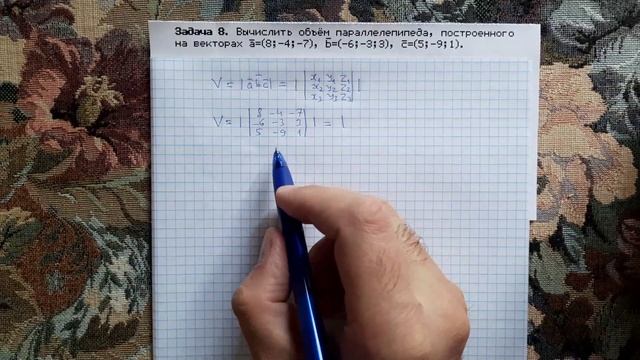 Задача 8. Вычислить объём параллелепипеда, построенного
на векторах a̅=(8;-4;-7), b̅=(-6;-3;3), c̅=(5;-9;1).
V = |a̅b̅c̅| = | | x₁ y₁ z₁ | |
x₂ y₂ z₂
x₃ y₃ z₃
V = | | 8 -4 -7 | | = |
-6 -3 3
5 -9 1